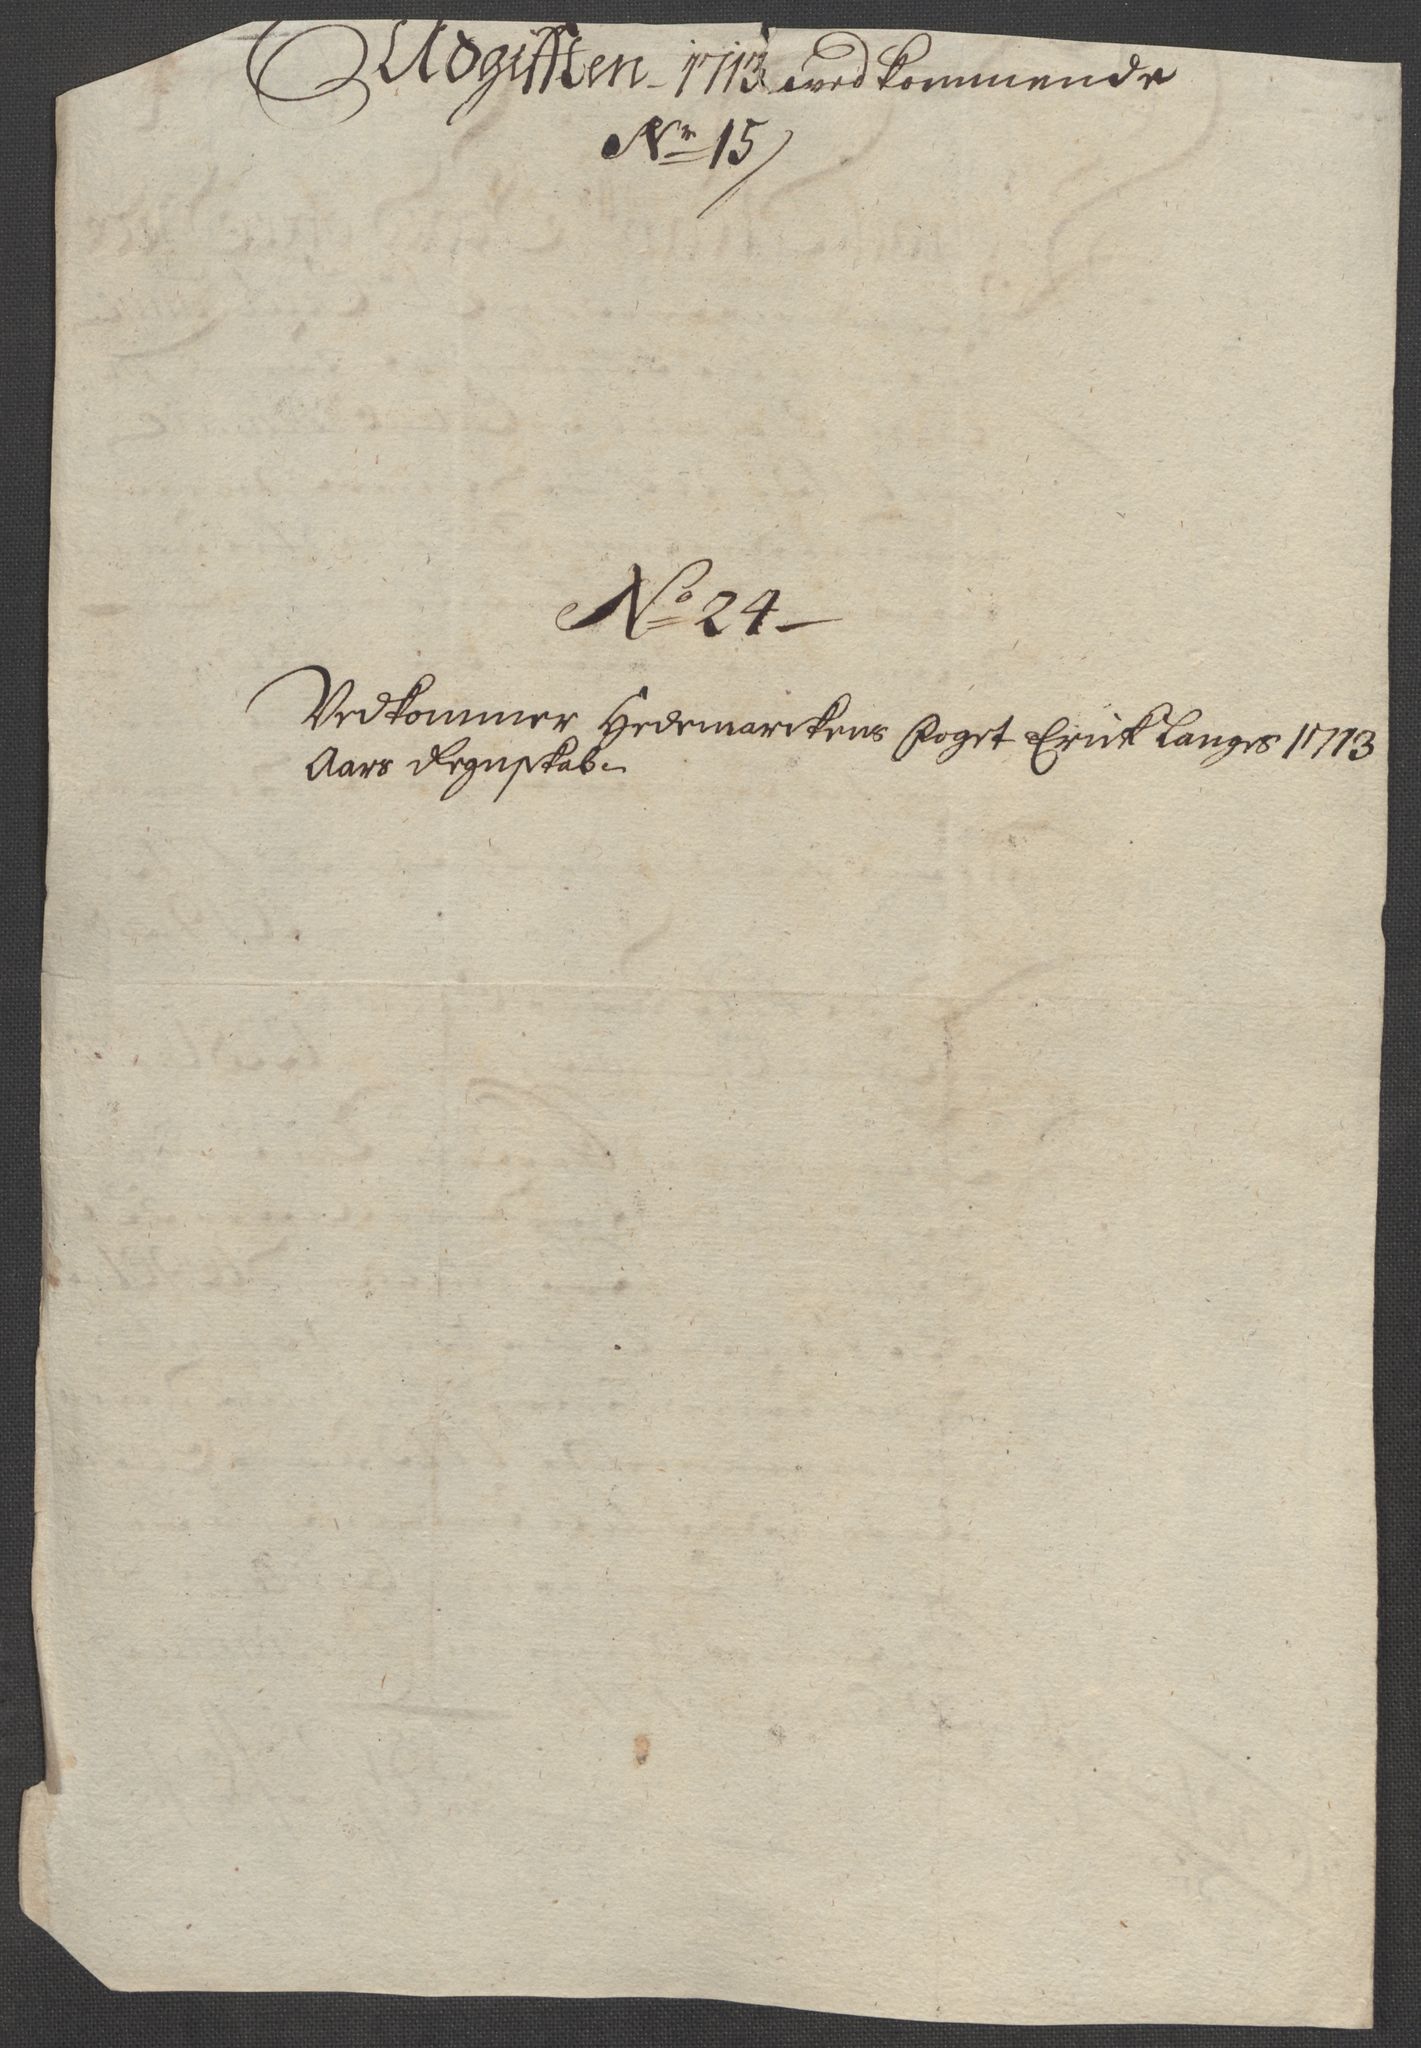 Udgifften 1713 vedkommende
Nr 15
No 24
Vedkommer Hedemarckens Foget Erick Langes 1713
Aars Regnskab.